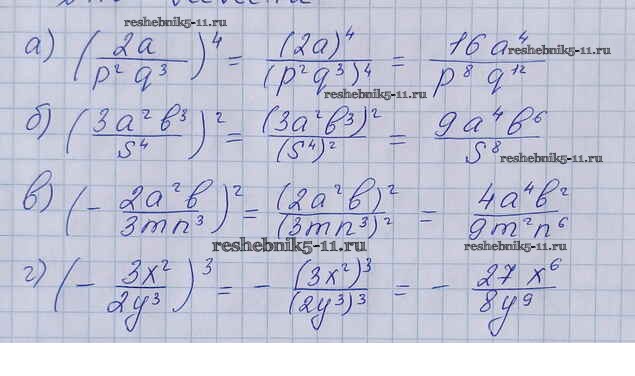 reshebnik5-11.ru
а) (2a / p² q³)⁴ = (2a)⁴ / (p² q³)⁴ = 16 a⁴ / p⁸ q¹²
reshebnik5-11.ru
б) (3a² b³ / s⁴)² = (3a² b³)² / (s⁴)² = 9a⁴ b⁶ / s⁸
reshebnik5-11.ru
в) (- 2a² b / 3mn³)² = (2a² b)² / (3mn³)² = 4a⁴ b² / 9m² n⁶
reshebnik5-11.ru
г) (- 3x² / 2y³)³ = - (3x²)³ / (2y³)³ = - 27 x⁶ / 8y⁹